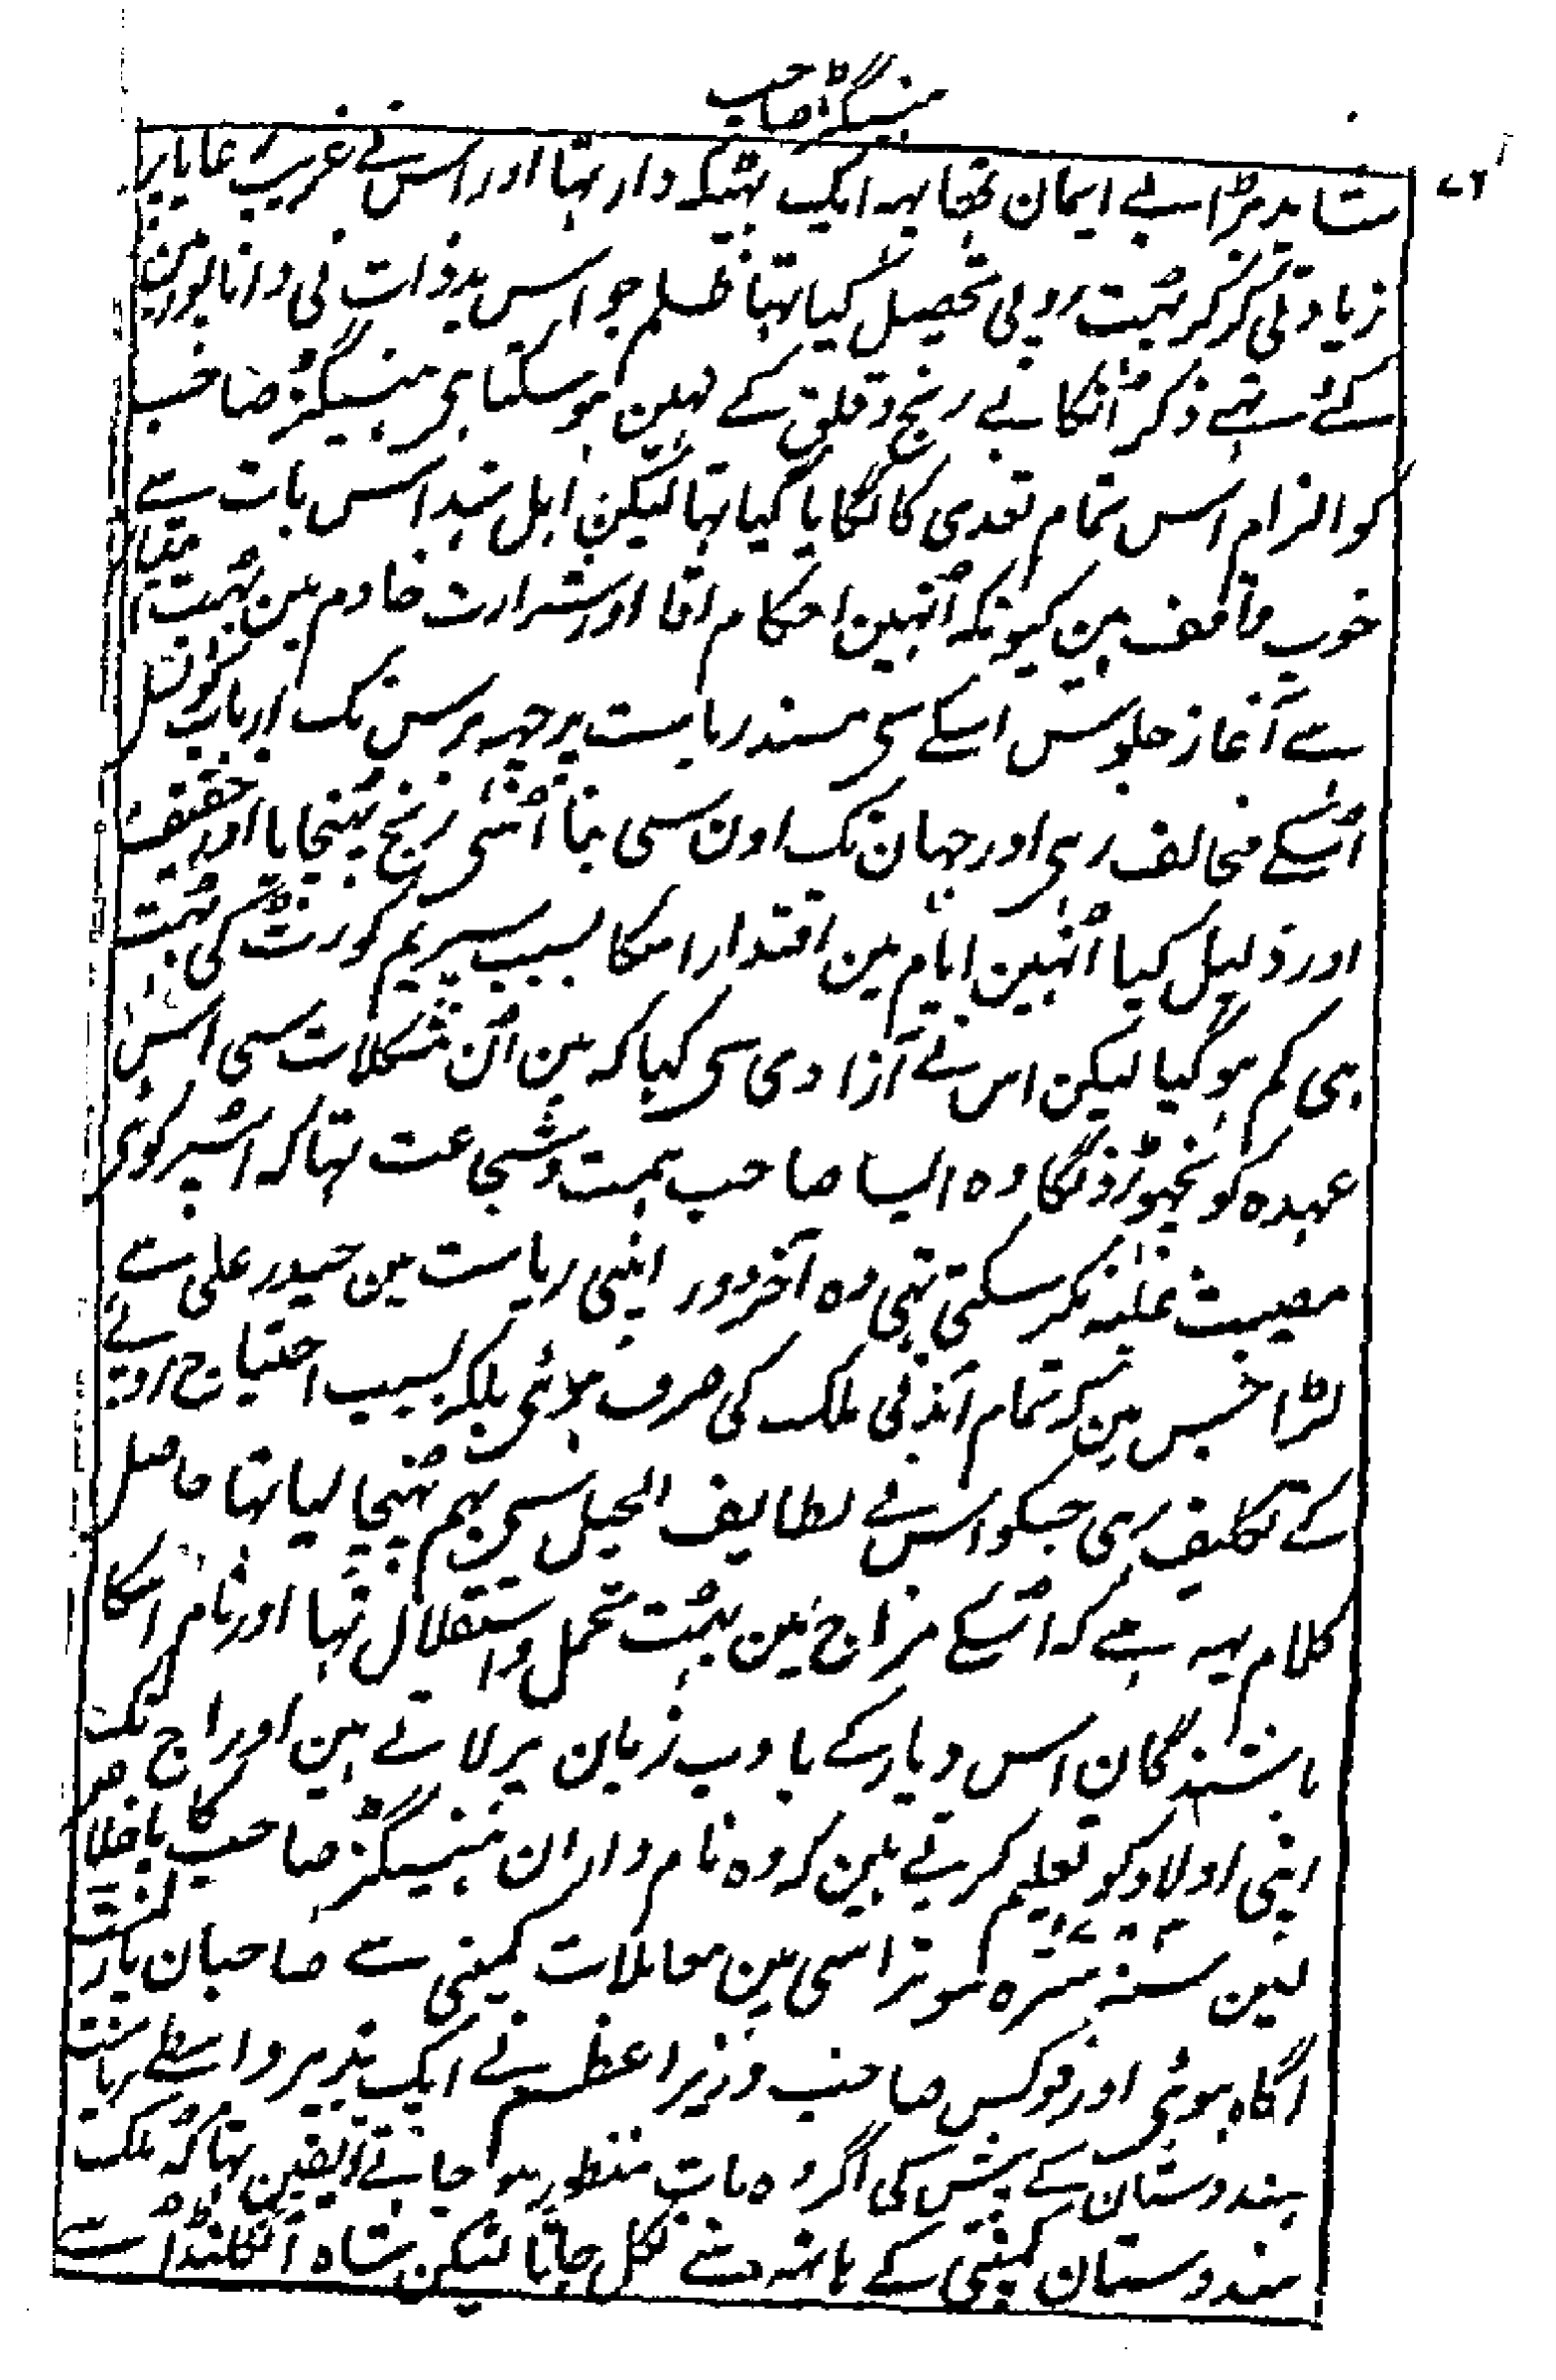 ہنیسٹنگز صاحب
۷۶
شاید بڑا بے ایمان تھا یہہ ایک ٹھیکہ دار تہا اور اس نے غریب رعایا پر
زیادتی کرکر بہت روپی تحصیل کیا تہا ظلم جو اس بدذات نی دانا پور مین
کئے تہے ذکر اُنکا بے رنج و قلق کے نہین ہو سکتا ہی ہنیسٹنگز صاحب
کو الزام اس تمام تعدی کا لگایا گیا تہا لیکن اہل ہند اس بات سے
خوب واقف ہین کیونکہ اُنہین احکام اقا اور شرارت خادم مین بہت امتیاز
ہے آغاز جلوس اسکے سی مسند ریاست پر چہہ برس تک ارباب کونسل
اُسکے مخالف رہی اور جہان تک اون سی بنا اُسی رنج پہنچایا اور خفیف
اور ذلیل کیا اُنہین ایام مین اقتدار اسکا بسبب سپریم کورٹ کی بہت
ہی کم ہو گیا لیکن اس نے آزادی سی کہا کہ مین اُن مشکلات سی اس
عہدہ کو نچہوڑونگا وہ ایسا صاحب ہمت و شجاعت تہا کہ اسپر کوئی
مصیبت غلبہ نکر سکتی تہی وہ آخر دور اپنی ریاست مین حیدر علی سے
لڑا جس مین کہ تمام آمدنی ملک کی صرف ہوئی بلکہ بسبب احتیاج روپے
کے تکلیف رہی جسکو اس نے لطایف الحیل سی بہم پہنچا لیا تہا حاصل
کلام یہہ ہے کہ اُسکے مزاج مین بہت تحمل و استقلال تہا اور نام اسکا
باشندگان اس دیار کے با ادب زبان پر لاتے ہین اور اج تک
اپنی اولاد کو تعلیم کرتے ہین کہ وہ نام وارن ہنیسٹنگز صاحب کا باخلاص
لین سنہ سترہ سو تراسی ۱۷۸۳ مین معاملات کمپنی سے صاحبان پارلمنٹ
اگاہ ہوئی اور فوکس صاحب وزیر اعظم نے ایک تدبیر واسطے ریاست
ہندوستان کے پیش کی اگر وہ بات منظور ہو جاتے یقین تہا کہ ملک
ہندوستان کمپنی کے ہاتہہ سے نکل جاتا لیکن شاہ انگلنڈ اُسے